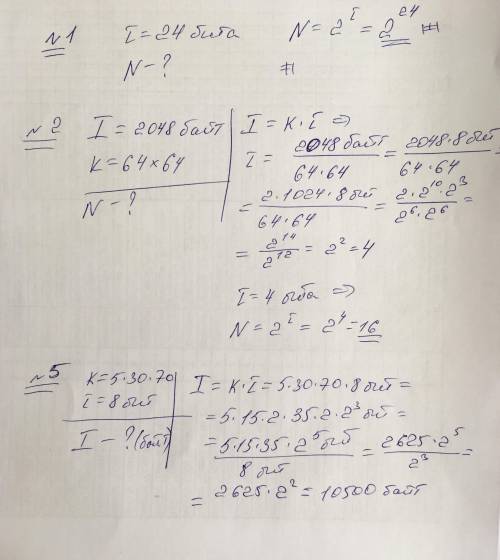 №1 i = 24 бита N = 2^i = 2^24 #
N - ? #
№2 I = 2048 байт I = K · i ⇒
K = 64 × 64 i = 2048 байт / 64 · 64 = 2048 · 8 бит / 64 · 64 =
N - ? = 2 · 1024 · 8 бит / 64 · 64 = 2 · 2^10 · 2^3 / 2^6 · 2^6 =
= 2^14 / 2^12 = 2^2 = 4
i = 4 бита ⇒
N = 2^i = 2^4 = 16
№5 K = 5 · 30 · 70 I = K · i = 5 · 30 · 70 · 8 бит =
i = 8 бит = 5 · 15 · 2 · 35 · 2 · 2^3 бит =
I - ? (байт) = 5 · 15 · 35 · 2^5 бит / 8 бит = 2625 · 2^5 / 2^3 =
= 2625 · 2^2 = 10500 байт